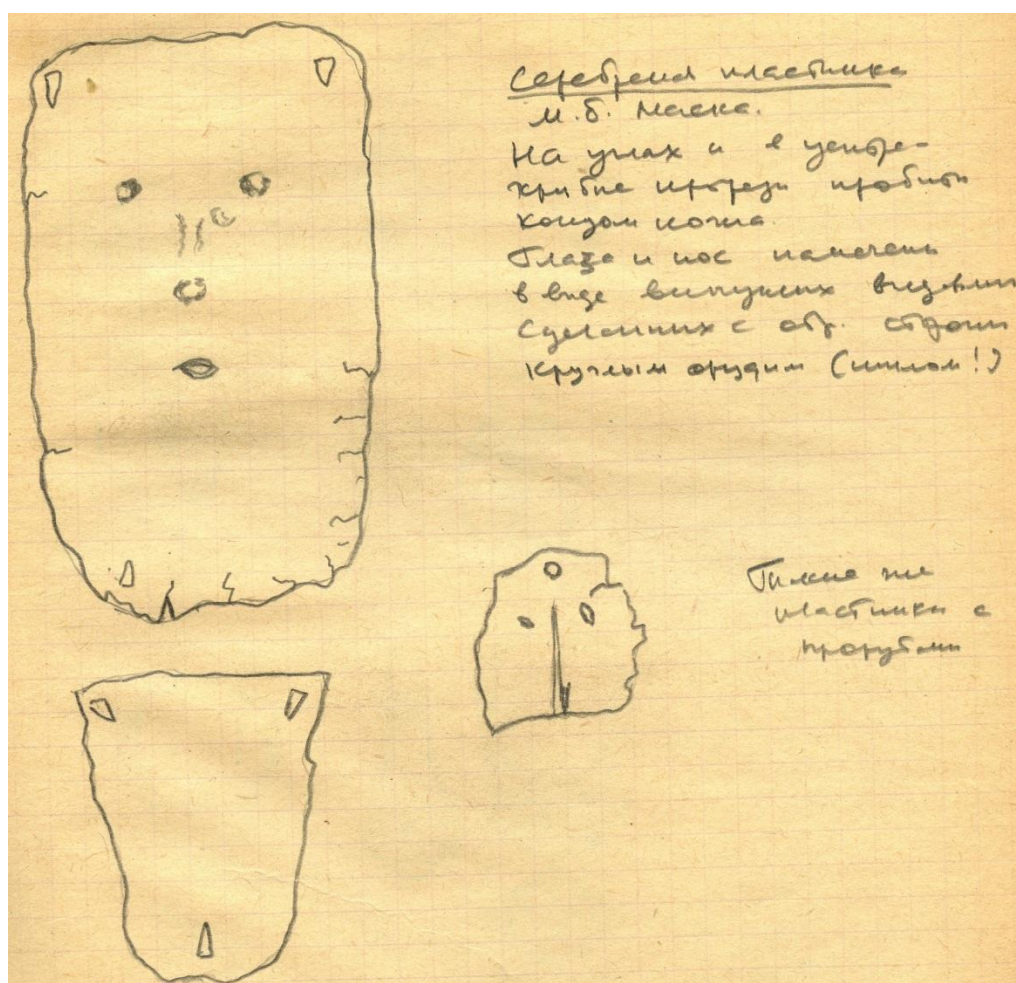 Серебряная пластинка
М.б. маска.
На углах и в центре
прорези пробиты
концом ножа.
Глаза и нос намечены
в виде выпуклин
сделанных с обр. стороны
круглым орудием (шилом!)
Такие же
пластинки с